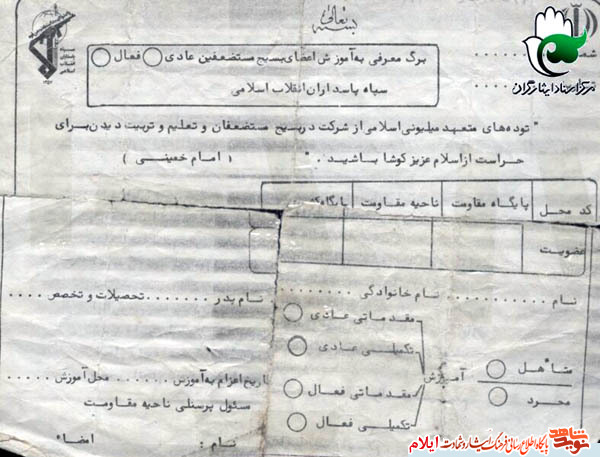 بسمه تعالی
سپاه پاسداران انقلاب اسلامی
شما
مرکز اسناد ایثارگران
برگ معرفی به آموزش اعضای بسیج مستضعفین عادی فعال
سپاه پاسداران انقلاب اسلامی
" توده‌های متعهد میلیونی اسلامی از شرکت در بسیج مستضعفان و تعلیم و تربیت دیدن برای
حراست از اسلام عزیز کوشا باشید . " ( امام خمینی )
کد محل پایگاه مقاومت ناحیه مقاومت
عضویت
نام .......... نام خانوادگی .......... نام پدر ....... تحصیلات و تخصص ....
متأهل
مجرد
آموزش
مقدماتی عادی
تکمیلی عادی
مقدماتی فعال
تکمیلی فعال
تاریخ اعزام به آموزش ...... محل آموزش .....
مسئول پرسنلی ناحیه مقاومت
نام : امضاء
نوید شاهد پایگاه اطلاع رسانی فرهنگ ایثار و شهادت ایلام